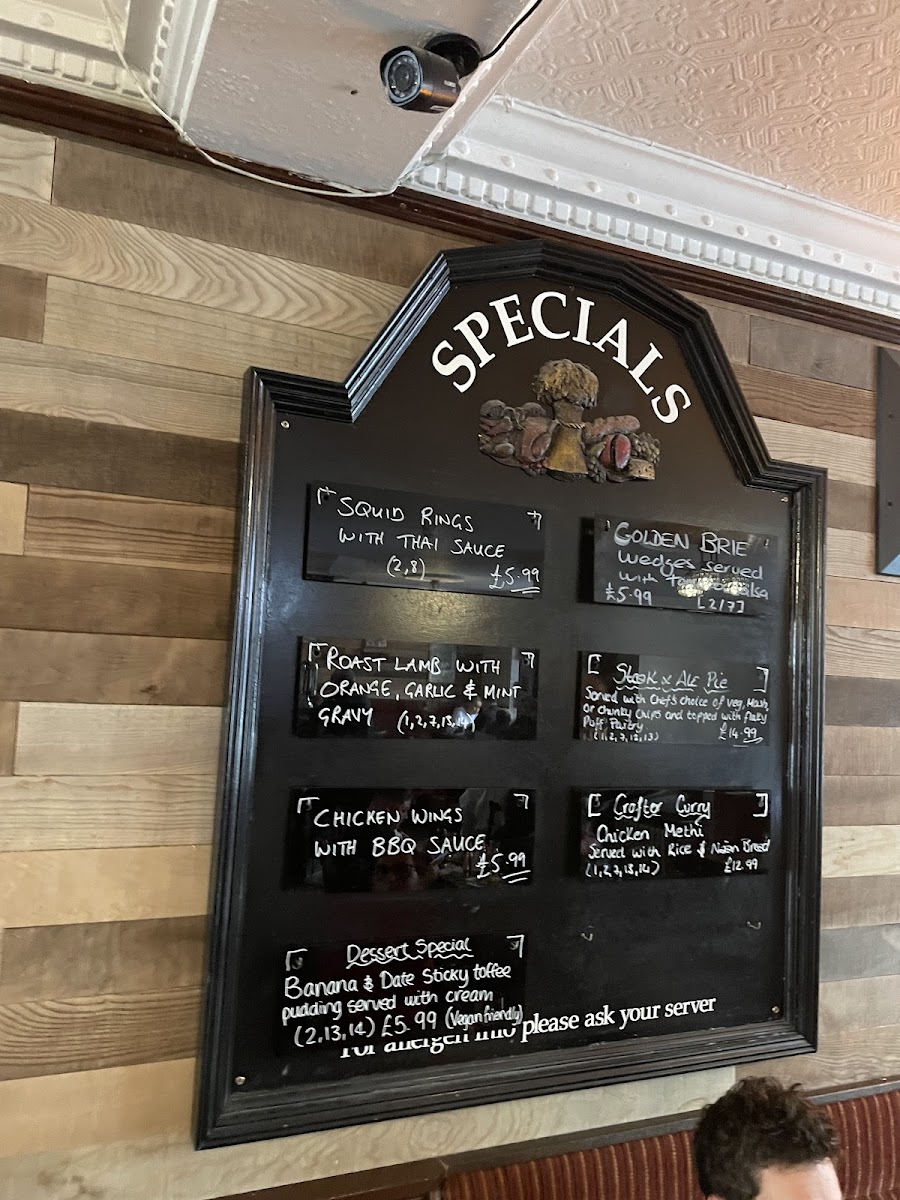 SPECIALS
SQUID RINGS
WITH THAI SAUCE
(2,8) £5.99
GOLDEN BRIE
Wedges served
with
£5.99 [2/7]
ROAST LAMB WITH
ORANGE, GARLIC & MINT
GRAVY (1,2,7,13,14)
Steak & Ale Pie
Served with Chef's choice of veg, Mash,
Or Chunky Chips and topped with flaky
Puff Pastry
(1,2,7,12,13) £14.99
CHICKEN WINGS
WITH BBQ SAUCE
£5.99
Crofter Curry
Chicken Methi
Served with Rice & Naan Bread
(1,2,7,13,14) £12.99
Dessert Special
Banana & Date Sticky toffee
pudding served with cream
(2,13,14) £5.99 (Vegan friendly)
For allergen info please ask your server